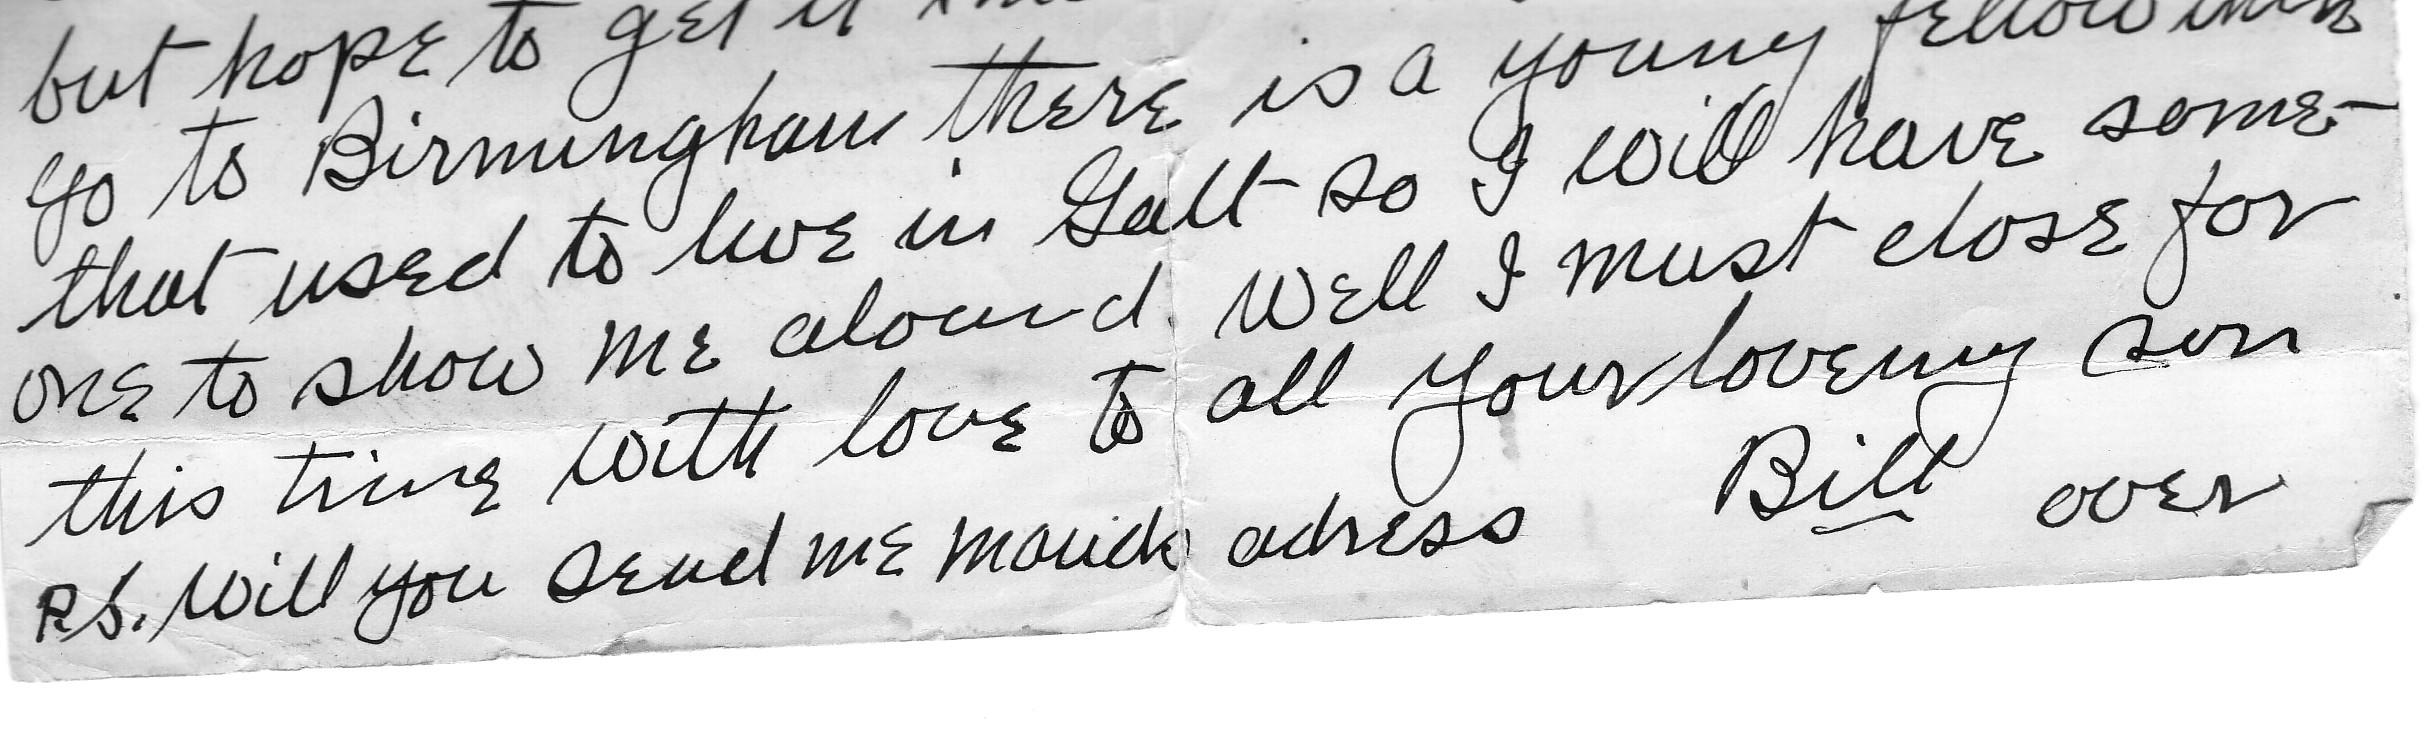 but hope to get it
go to Birmingham there is a young fellow
that used to live in Galt so I will have some-
one to show me around. Well I must close for
this time with love to all your loveing son
Bill
P.S. Will you send me adress over